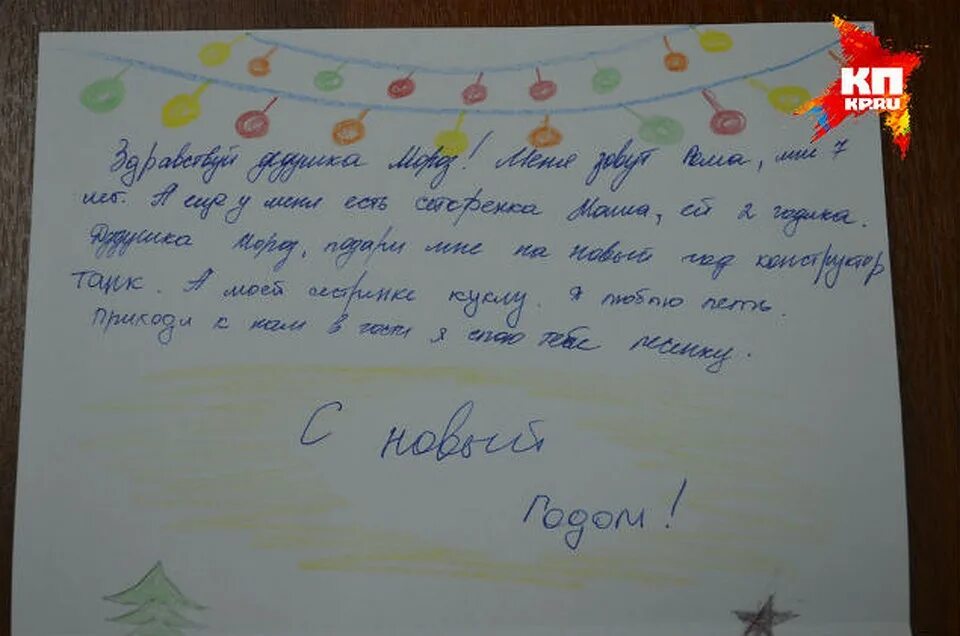 КП
KP.RU
Здравствуй дедушка Мороз! Меня зовут Рома, мне 7
лет. А еще у меня есть сесторенка Маша, ей 2 годика.
Дедушка Мороз, подари мне на новый год конструктор
танк. А моей сестринке куклу. Я люблю петь.
Приходи к нам в гости я спою тебе песенку.
С новый
Годом!